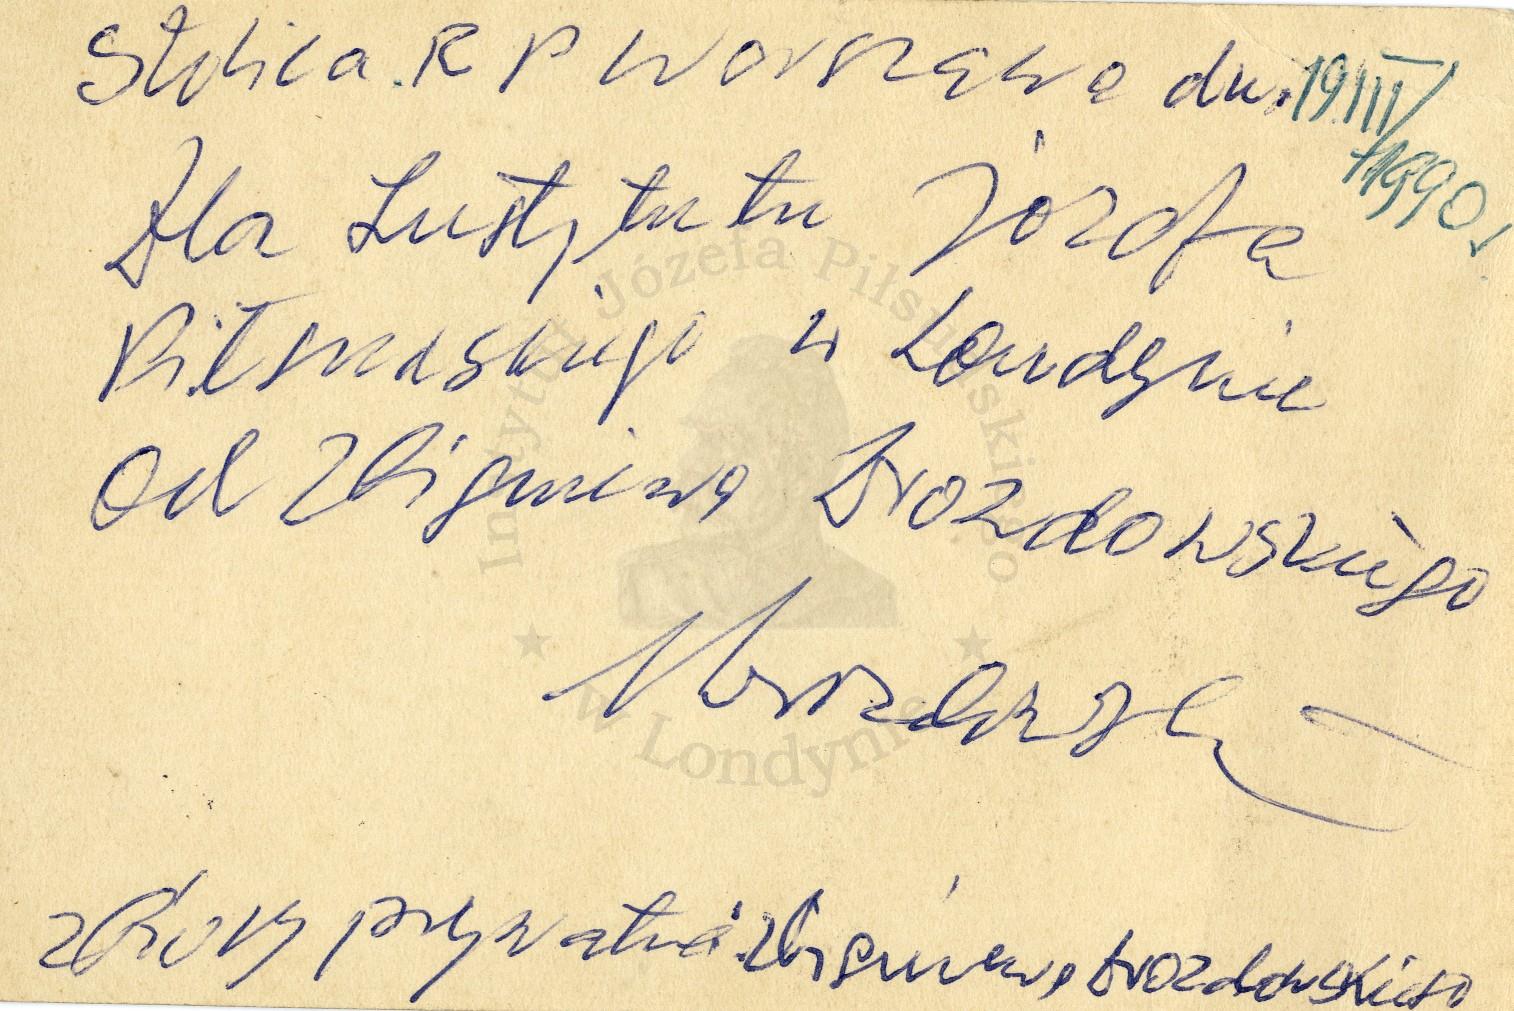 Stolica R P Warszawa dn. 19.III/
1990.
Dla Instytutu Józefa
Piłsudskiego w Londynie
od Zbigniewa Drozdowskiego
Drozdowski
zbiory prywatne Zbigniewa Drozdowskiego
Instytut Józefa Piłsudskiego
w Londynie